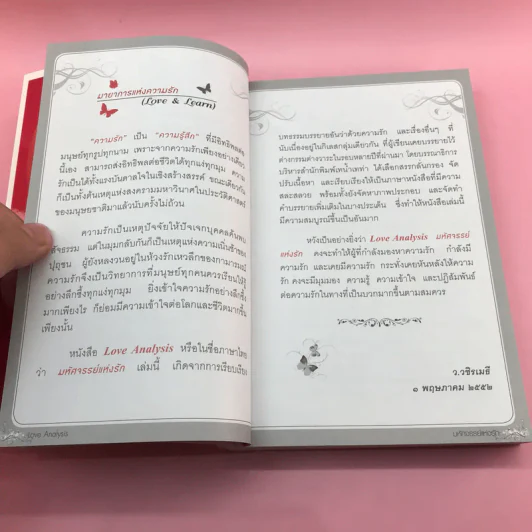 มายาการแห่งความรัก
(Love & Learn)
"ความรัก" เป็น "ความรู้สึก" ที่มีอิทธิพลต่อ
มนุษย์ทุกรูปทุกนาม เพราะจากความรักเพียงอย่างเดียว
นี้เอง สามารถส่งอิทธิพลต่อชีวิตได้ทุกแง่ทุกมุม ความ
รักเป็นได้ทั้งแรงบันดาลใจในเชิงสร้างสรรค์ ขณะเดียวกัน
ก็เป็นทั้งต้นเหตุแห่งสงครามมหาวินาศในประวัติศาสตร์
ของมนุษยชาติมาแล้วนับครั้งไม่ถ้วน
ความรักเป็นเหตุปัจจัยให้ปัจเจกบุคคลค้นพบ
สัจธรรม แต่ในมุมกลับกันก็เป็นเหตุแห่งความเนิ่นช้าของ
ปุถุชน ผู้ยังหลงวนอยู่ในห้วงรักเหวลึกของกามารมณ์
ความรักจึงเป็นวิทยาการที่มนุษย์ทุกคนควรเรียนให้รู้
อย่างลึกซึ้งทุกแง่ทุกมุม ยิ่งเข้าใจความรักอย่างลึกซึ้ง
มากเพียงไร ก็ย่อมมีความเข้าใจต่อโลกและชีวิตมากขึ้น
เพียงนั้น
หนังสือ Love Analysis หรือในชื่อภาษาไทย
ว่า มหัศจรรย์แห่งรัก เล่มนี้ เกิดจากการเรียบเรียง
Love Analysis
บทธรรมบรรยายอันว่าด้วยความรัก และเรื่องอื่นๆ ที่
นับเนื่องอยู่ในกิเลสกลุ่มเดียวกัน ที่ผู้เขียนเคยบรรยายไว้
ต่างกรรมต่างวาระในรอบหลายปีที่ผ่านมา โดยบรรณาธิการ
บริหารสำนักพิมพ์หน้ำเพทา ได้เลือกสรรกลั่นกรอง จัด
ปรับเนื้อหา และเรียบเรียงให้เป็นภาษาหนังสือที่มีความ
สละสลวย พร้อมทั้งยังจัดหาภาพประกอบ และจัดทำ
คำบรรยายเพิ่มเติมในบางประเด็น ซึ่งทำให้หนังสือเล่มนี้
มีความสมบูรณ์ขึ้นเป็นอันมาก
หวังเป็นอย่างยิ่งว่า Love Analysis มหัศจรรย์
แห่งรัก คงจะทำให้ผู้ที่กำลังมองหาความรัก กำลังมี
ความรัก และเคยมีความรัก กระทั่งเคยหันหลังให้ความ
รัก คงจะมีมุมมอง ความรู้ ความเข้าใจ และปฏิสัมพันธ์
ต่อความรักในทางที่เป็นบวกมากขึ้นตามสมควร
ว.วชิรเมธี
๑ พฤษภาคม ๒๕๕๒
มหัศจรรย์แห่งรัก